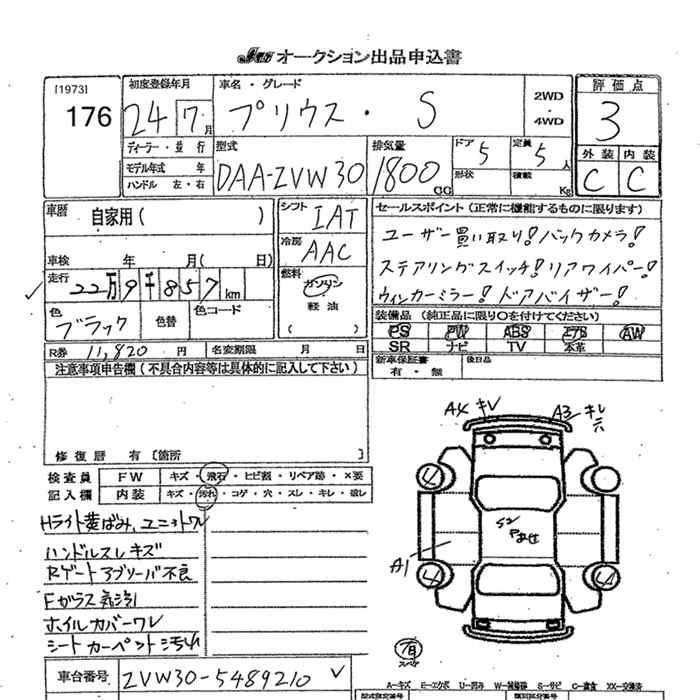 JU オークション出品申込書
[1973]
176
初度登録年月
24 7 月
ディーラー・並行
モデル年式 年
ハンドル 左・右
車名・グレード
プリウス・ S
2WD
・
4WD
型式
DAA-ZVW30
排気量
1800 CC
ドア
5
定員
5 人
形状
積載
Kg
評価点
3
外装 内装
C C
車歴
自家用( )
車検 年 月( 日)
走行
22万9千857 km
色
ブラック
色替
色コード
シフト
IAT
冷房
AAC
燃料
ガソリン
軽油
( )
セールスポイント(正常に機能するものに限ります)
ユーザー買い取り!バックカメラ!
ステアリングスイッチ!リアワイパー!
ウィンカーミラー!ドアバイザー!
装備品(純正品に限り○を付けてください)
PS PW ABS エアB AW
SR ナビ TV 本革
新車保証書
有・無
後日品
R券 11,820 円
名変期限 月 日
注意事項申告欄(不具合内容等は具体的に記入して下さい)
修復歴 有〔箇所 〕
検査員
記入欄
FW キズ・飛石・ヒビ割・リペア跡・×要
内装 キズ・汚れ・コゲ・穴・スレ・キレ・破レ
Hライト黄ばみ、ユニットワレ
ハンドルスレキズ
Rゲートアブソーバ不良
Fガラス飛石
ホイルカバーワレ
シートカーペット汚れ
A4 キレ
A3 キレ
S2
A1
車台番号
ZVW30-5489210
A-キズ E-エクボ U-凹み W-補修跡 S-サビ C-腐食 XX-交換済